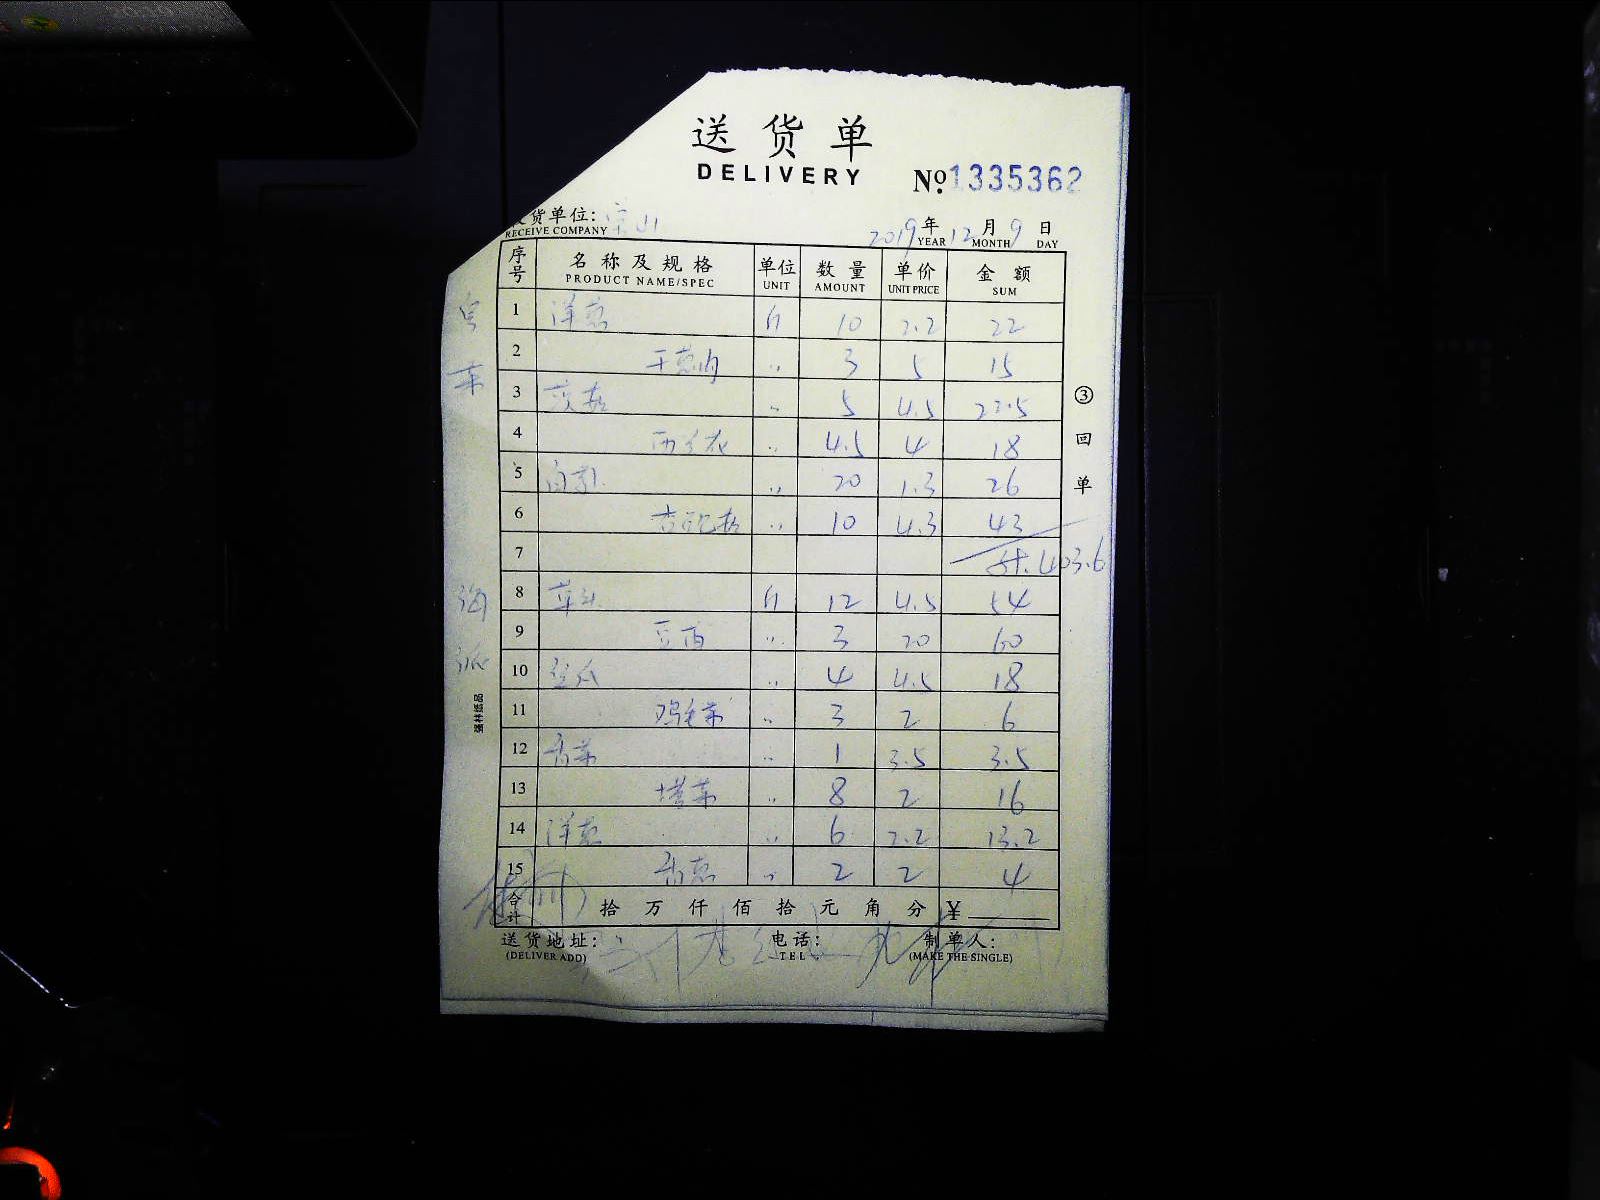 送货单
DELIVERY
№ 1335362
货单位: 宝山
RECEIVE COMPANY
2019年 12月 9日
YEAR MONTH DAY
序号 名称及规格 单位 数量 单价 金额
PRODUCT NAME/SPEC UNIT AMOUNT UNIT PRICE SUM
1 洋葱 斤 10 2.2 22
2 干葱肉 〃 3 5 15
3 茭菇 〃 5 4.5 22.5
4 西兰花 〃 4.5 4 18
5 〃 20 1.3 26
6 杏鲍菇 〃 10 4.3 43
7 计.403.6
8 草头 斤 12 4.5 54
9 豆苗 〃 3 20 60
10 丝瓜 〃 4 4.5 18
11 鸡毛菜 〃 3 2 6
12 香菜 〃 1 3.5 3.5
13 塔菜 〃 8 2 16
14 洋葱 〃 6 2.2 13.2
15 香葱 〃 2 2 4
合计 拾 万 仟 佰 拾 元 角 分 ¥
送货地址: 电话: 制单人:
(DELIVER ADD) TEL (MAKE THE SINGLE)
③回单
海派
强林纸品